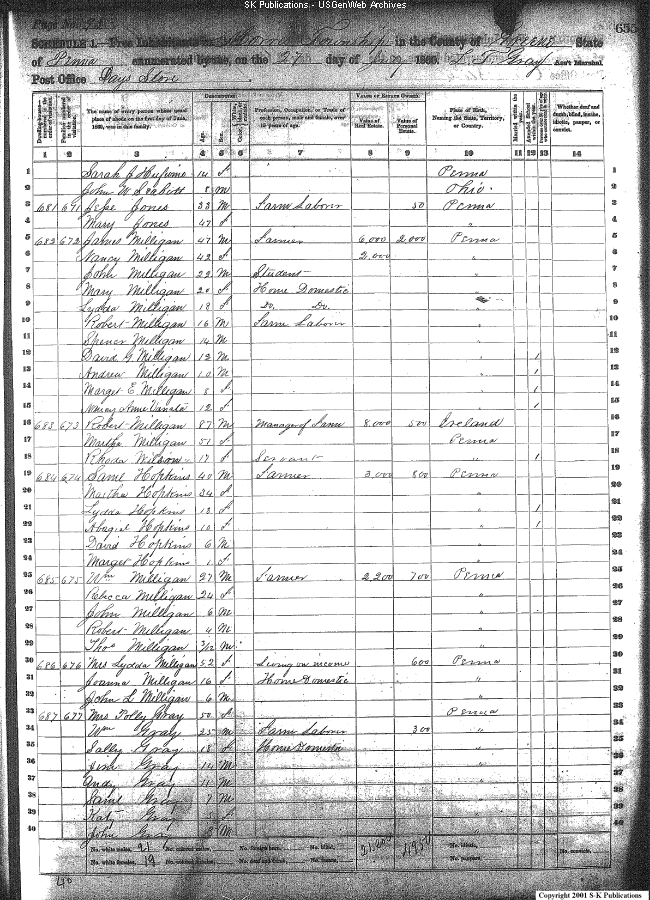 SK Publications - USGenWeb Archives
Page No.
655
SCHEDULE 1.—Free Inhabitants in Township in the County of Greene State
of Penna enumerated by me, on the 27th day of 1860. Gray Ass't Marshal.
Post Office Jays Store
Dwelling-houses— numbered in the order of visitation.
Families numbered in the order of visitation.
The name of every person whose usual place of abode on the first day of June, 1860, was in this family.
DESCRIPTION.
Age.
Sex.
Profession, Occupation, or Trade of each person, male and female, over 15 years of age.
VALUE OF ESTATE OWNED.
Value of Real Estate.
Value of Personal Estate.
Place of Birth, Naming the State, Territory, or Country.
Married within the year.
Whether deaf and dumb, blind, insane, idiotic, pauper, or convict.
1 2 3 4 5 6 7 8 9 10 11 12 13 14
1 Sarah J 14 f Penna 1
2 John W 8 m Ohio 2
3 681 671 Jesse Jones 33 M Farm Laborer 50 Penna 3
4 Mary Jones 47 f " 4
5 682 672 James Milligan 47 M Farmer 6,000 2,000 Penna 5
6 Nancy Milligan 42 f 2,000 " 6
7 John Milligan 22 M Student " 7
8 Mary Milligan 20 f Home Domestic " 8
9 Lydda Milligan 18 f Do. Do. 9
10 Robert Milligan 16 M Farm Laborer " 10
11 Spencer Milligan 14 M " 11
12 David G Milligan 12 M " 1 12
13 Andrew Milligan 10 M " 1 13
14 Marget E. Milligan 8 f " 1 14
15 Nancy Anne 12 f " 1 15
16 683 673 Robert Milligan 87 M Manager of Farm 8,000 500 Ireland 16
17 Martha Milligan 51 f Penna 17
18 Rhoda Wilson 17 f Servant " 1 18
19 684 674 Saml Hopkins 40 M Farmer 3,000 800 Penna 19
20 Martha Hopkins 34 f " 20
21 Lydda Hopkins 13 f " 1 21
22 Abagil Hopkins 10 f " 1 22
23 David Hopkins 6 M 23
24 Marget Hopkins 1 f 24
25 685 675 Wm Milligan 27 M Farmer 2,200 700 Penna 25
26 Rebecca Milligan 24 f " 26
27 John Milligan 6 M " 27
28 Robert Milligan 4 M " 28
29 Thos Milligan M " 29
30 686 676 Mrs Lydda Milligan 52 f Living on income 600 Penna 30
31 Joanna Milligan 16 f Home Domestic " 31
32 John L Milligan 6 M " 32
33 687 677 Mrs Polly Gray 50 f Penna 33
34 Wm Gray 25 M Farm Laborer 300 " 34
35 Sally Gray 18 f Home Domestic " 35
36 Jim Gray 14 M " 36
37 Andy Gray 11 M " 37
38 Saml Gray 7 M " 38
39 Katy Gray 5 f " 39
40 John Gray 3 M " 40
No. white males, 21 No. colored males, No. foreign born, No. blind, No. idiotic, No. convicts,
No. white females, 19 No. colored females, No. deaf and dumb, No. insane, No. paupers,
40
Copyright 2001 S-K Publications